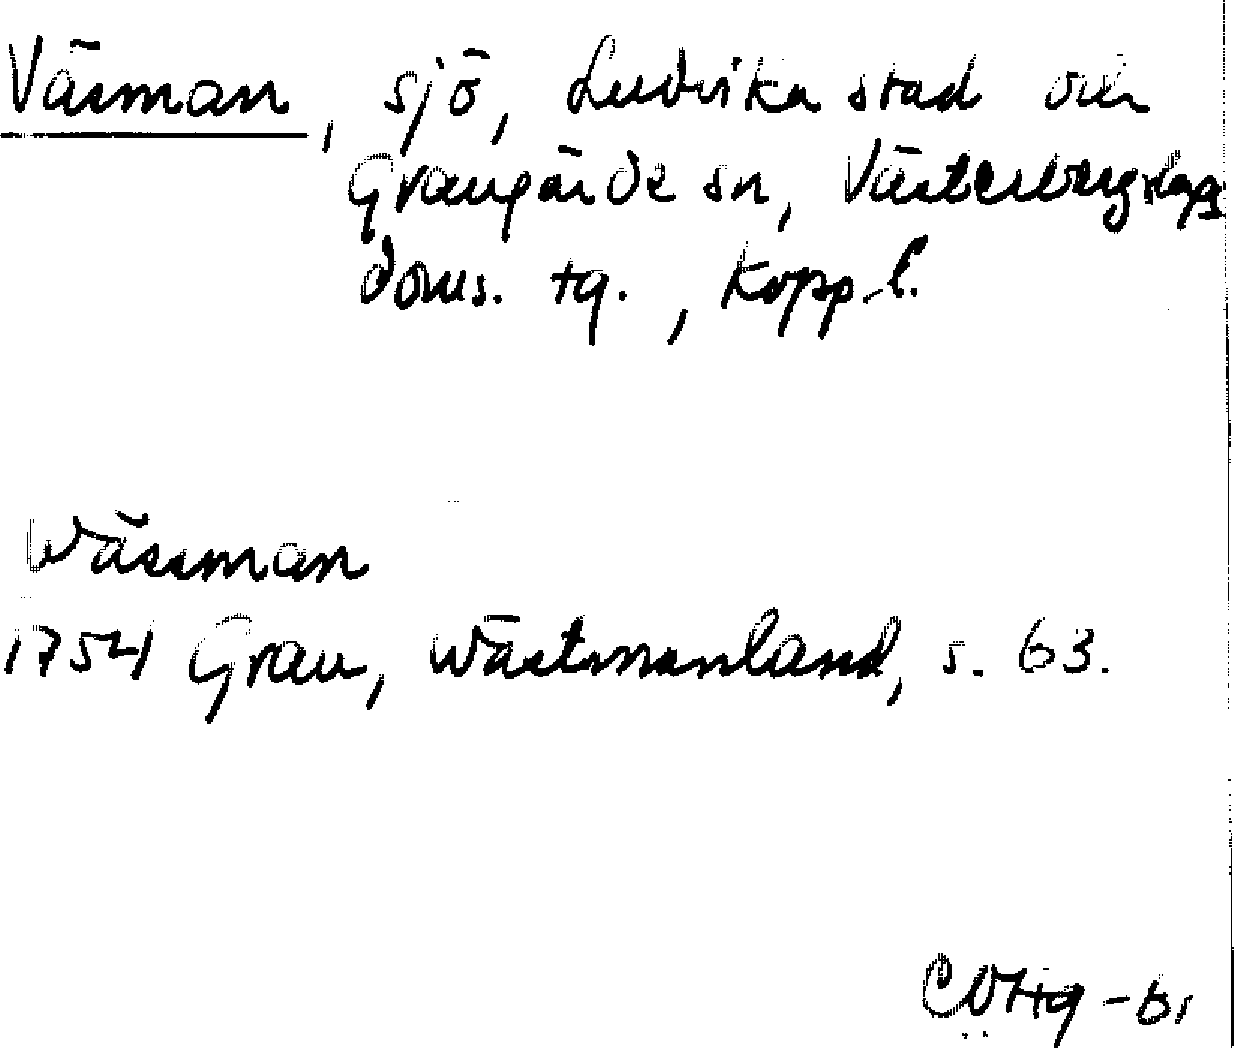 Väsman, sjö, Ludvika stad och
Grangärde sn, Västerbergslags
doms. tg., Kopp. l.
Wässman
1754 Grau, Wästmanland, s. 63.